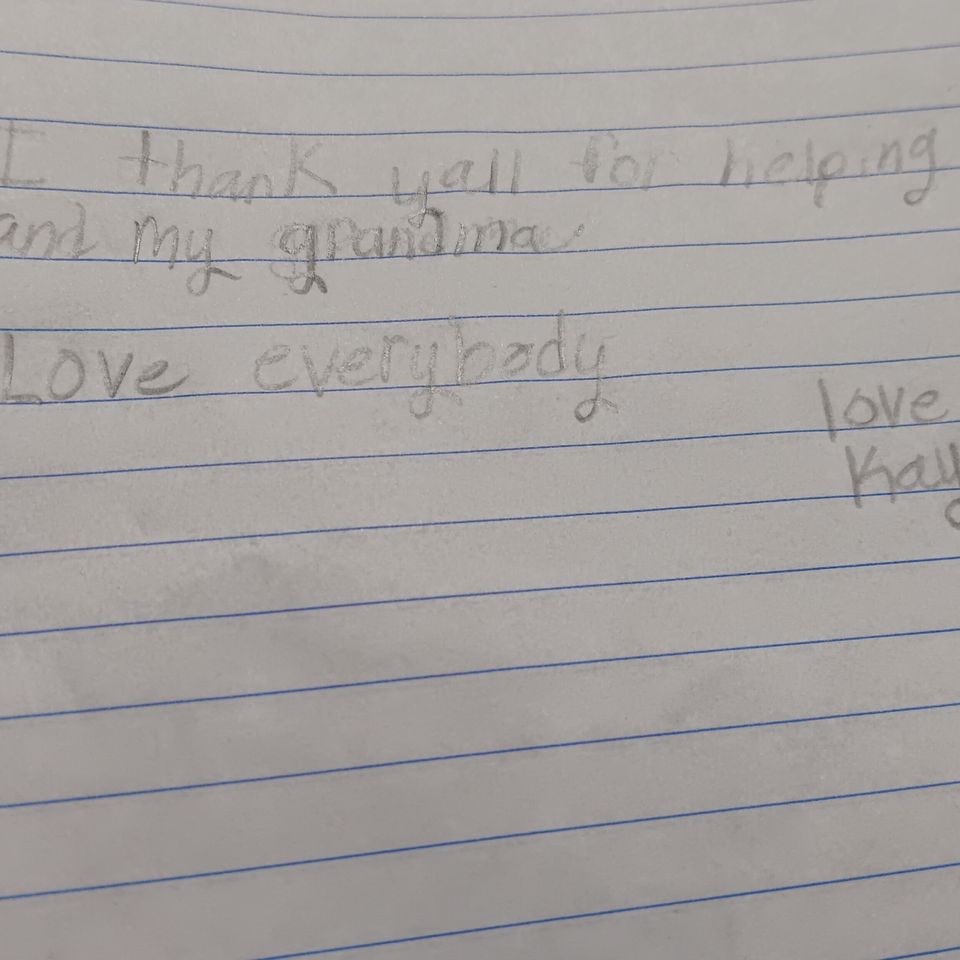 I thank yall for helping
and my grandma
Love everybody
love
Kay